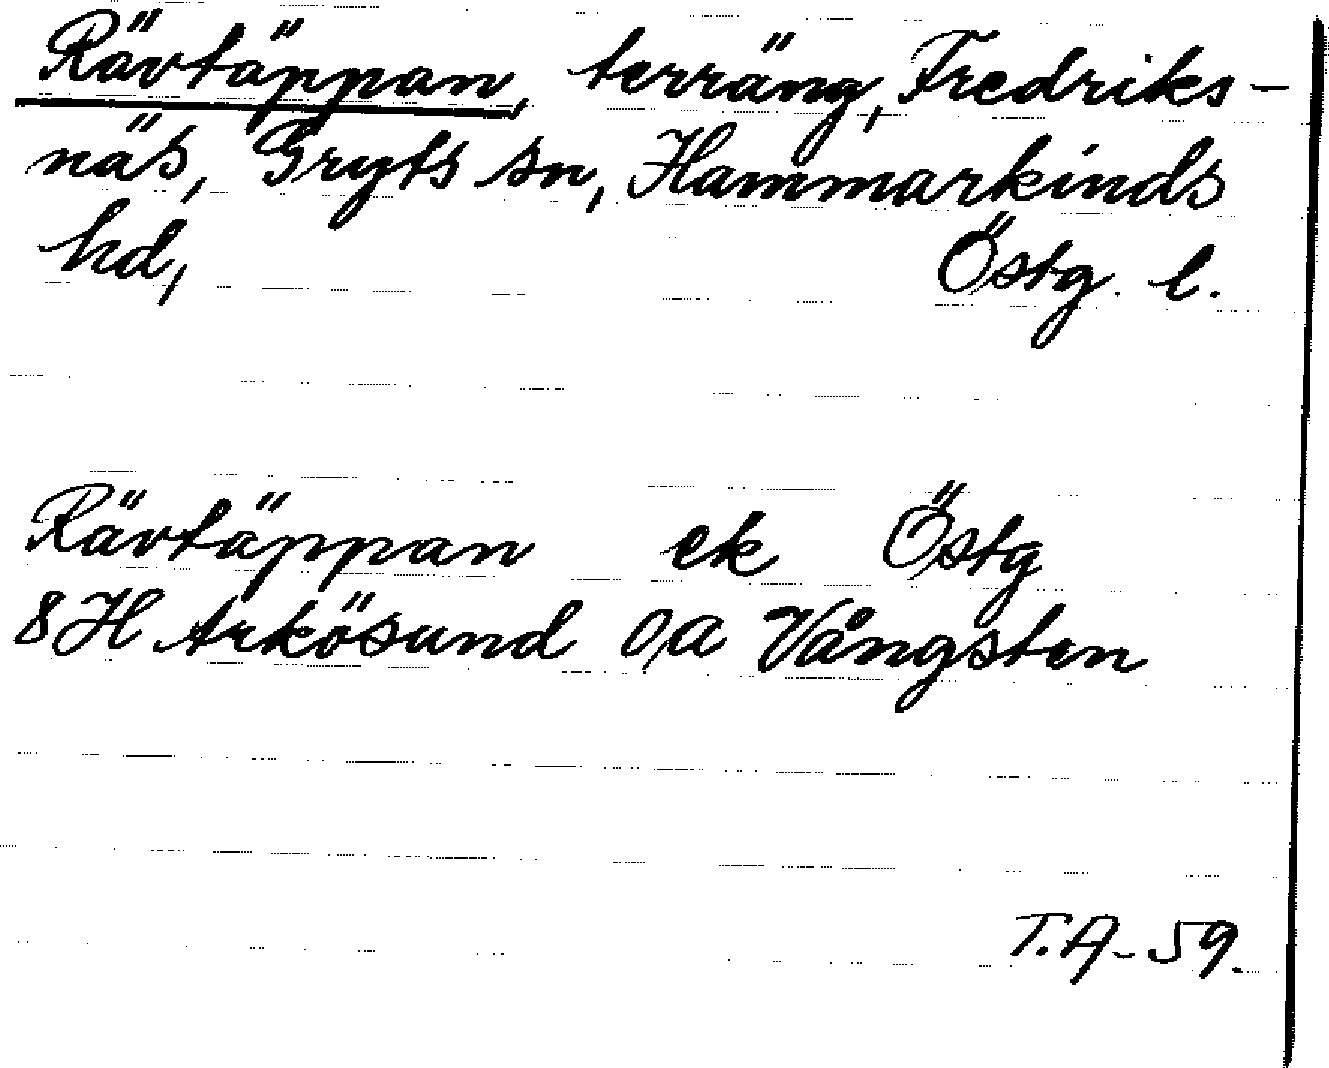 Rävtäppan, terräng, Fredriks-
näs, Gryts sn, Hammarkinds
hd, Östg. l.
Rävtäppan ek Östg
8H Arkösund 0,a Vångsten
T.A-59.